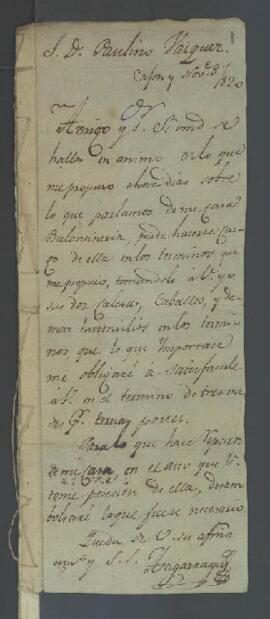 S. D. Paulino Vazquez.
y Nov.e 3/
1820
Amigo y S. Si vmd se
halla en animo de lo que
me propuso ahora dias sobre
lo que parlamos de mi casa
puede hacerse car-
go de ella en los terminos que
me propuso, tomandole a V. yo
sus dos Calesas, Caballos, y de-
mas en los termi-
nos que lo que Importase
me obligaré a satisfacerle
a V. en el termino de tres me-
ses p.r terceras partes.
Para lo que hace
de mi Casa, en el acto que V.
tome posesion de ella, desem-
bolsaré lo que fuese necesario.
Queda de V. su afmo
am.o y S. S.